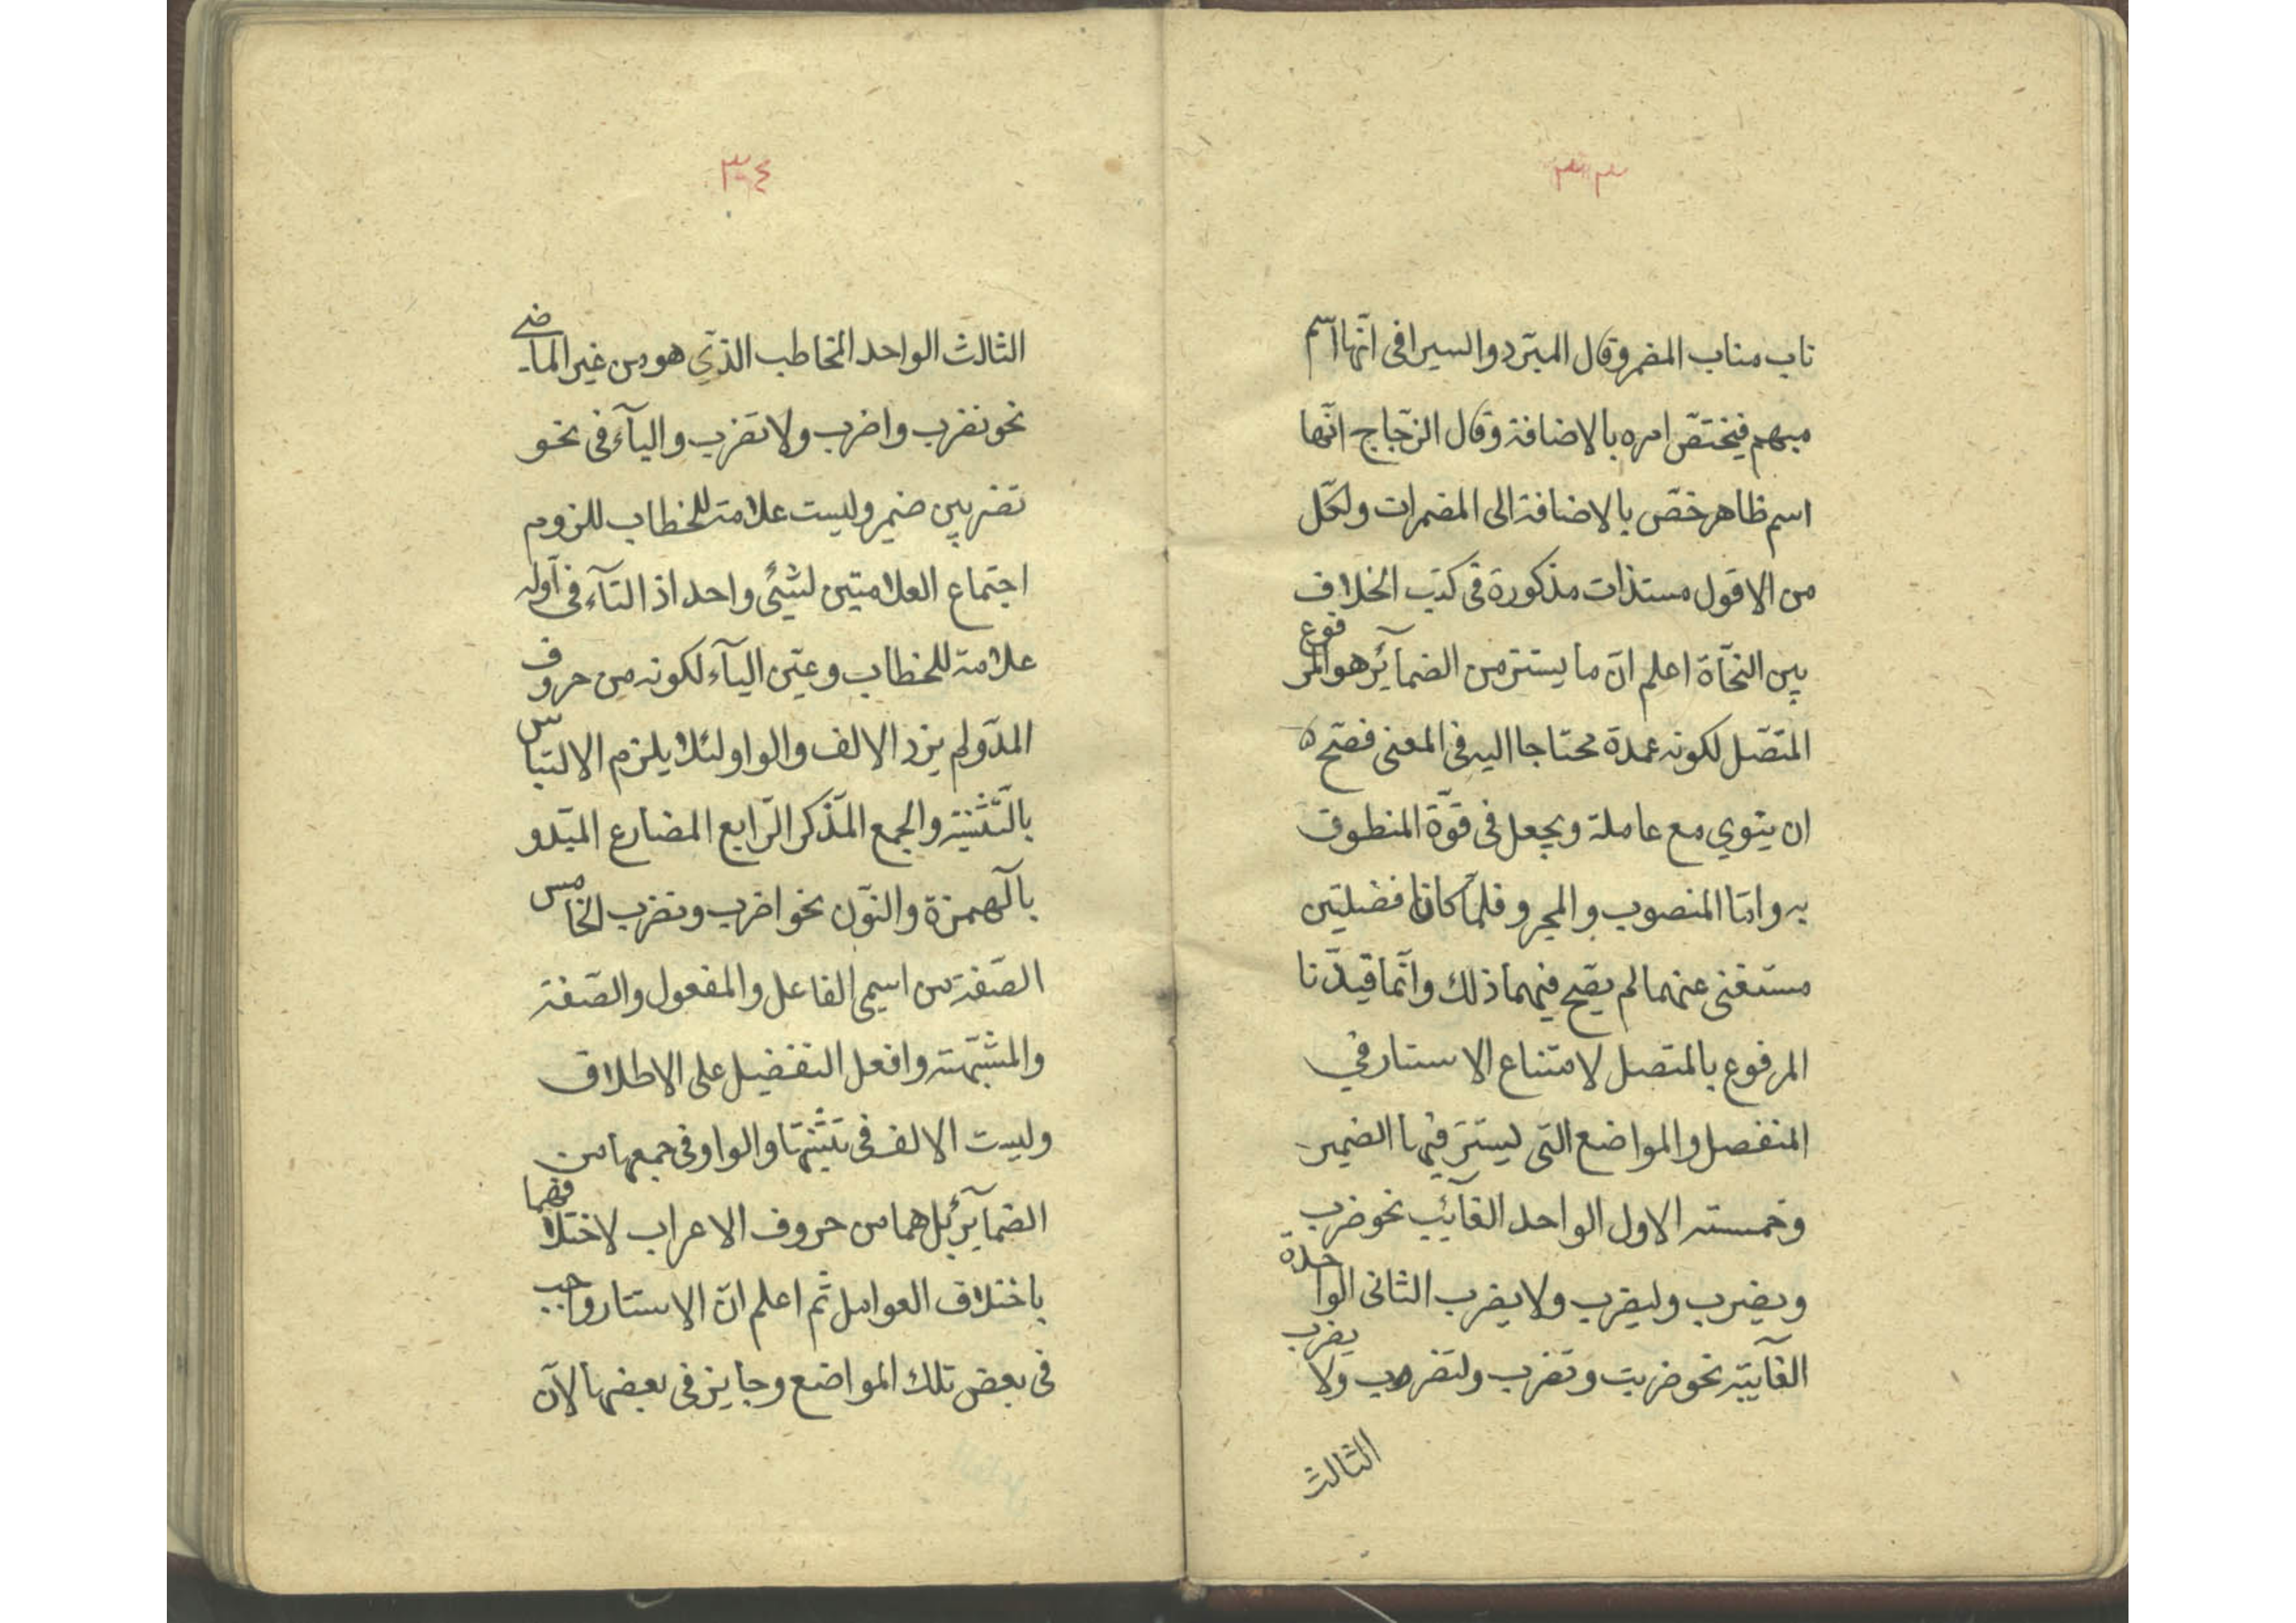 ٣٣
ناب مناب المضمر وقال المبرّد والسيرافى انّها اسم
مبهم فيختصّ امره بالاضافة وقال الزّجاج انّها
اسم ظاهر خصّ بالاضافة الى المضمرات ولكّل
من الاقول مستذات مذكورة فى كتب الخلاف
بين النحّاة اعلم انّ ما يستتر من الضمآئر هو المرفوع
المتّصل لكونه عمدة محتاجا اليه فى المعنى فصّح
ان ينوي مع عاملة ويجعل فى قوّة المنطوق
به وامّا المنصوب والمجرو فلمّا كانا فضليّين
مستغنى عنهما لم يصّح فيهما ذلك وانّما قيّدنا
المرفوع بالمتصل لامتناع الاستتار في
المنفصل والمواضع التى ليستتر فيها الضمير
وخمسته الاول الواحد الغآئب نحو ضرب
ويضرب وليضرب ولا يضرب الثانى الواحدة
الغآيبة نحو ضربت وتضرب ولتضرب ولا يضرب
الثالث
٣٤
الثالث الواحد المخاطب الذّي هو من غير الماضى
نحو تضرب واضرب ولا تضرب واليآء فى نحو
تضربين ضمير وليست علامة للخطاب للزوم
اجتماع العلامتين لشئى واحد اذ التآء فى اوله
علامة للخطاب وعيّن اليآء لكونه من حروف
المدّ ولم يزد الالف والواو لئلا يلزم الالتباس
بالتّثنية والجمع المذّكر الرّابع المضارع المبّدو
بالهمزة والنوّن نحو اضرب ونضرب الخامس
الصّفة من اسمى الفاعل والمفعول والصّفة
والمشبّهة وافعل التفضيل على الاطلاق
وليست الالف فى تثنيتها والواو فى جمعها من
الضمآير بل هما من حروف الاعراب لاختلافهما
باختلاف العوامل ثم اعلم انّ الاستتار واجب
فى بعض تلك المواضع وجايز فى بعضها لانّ